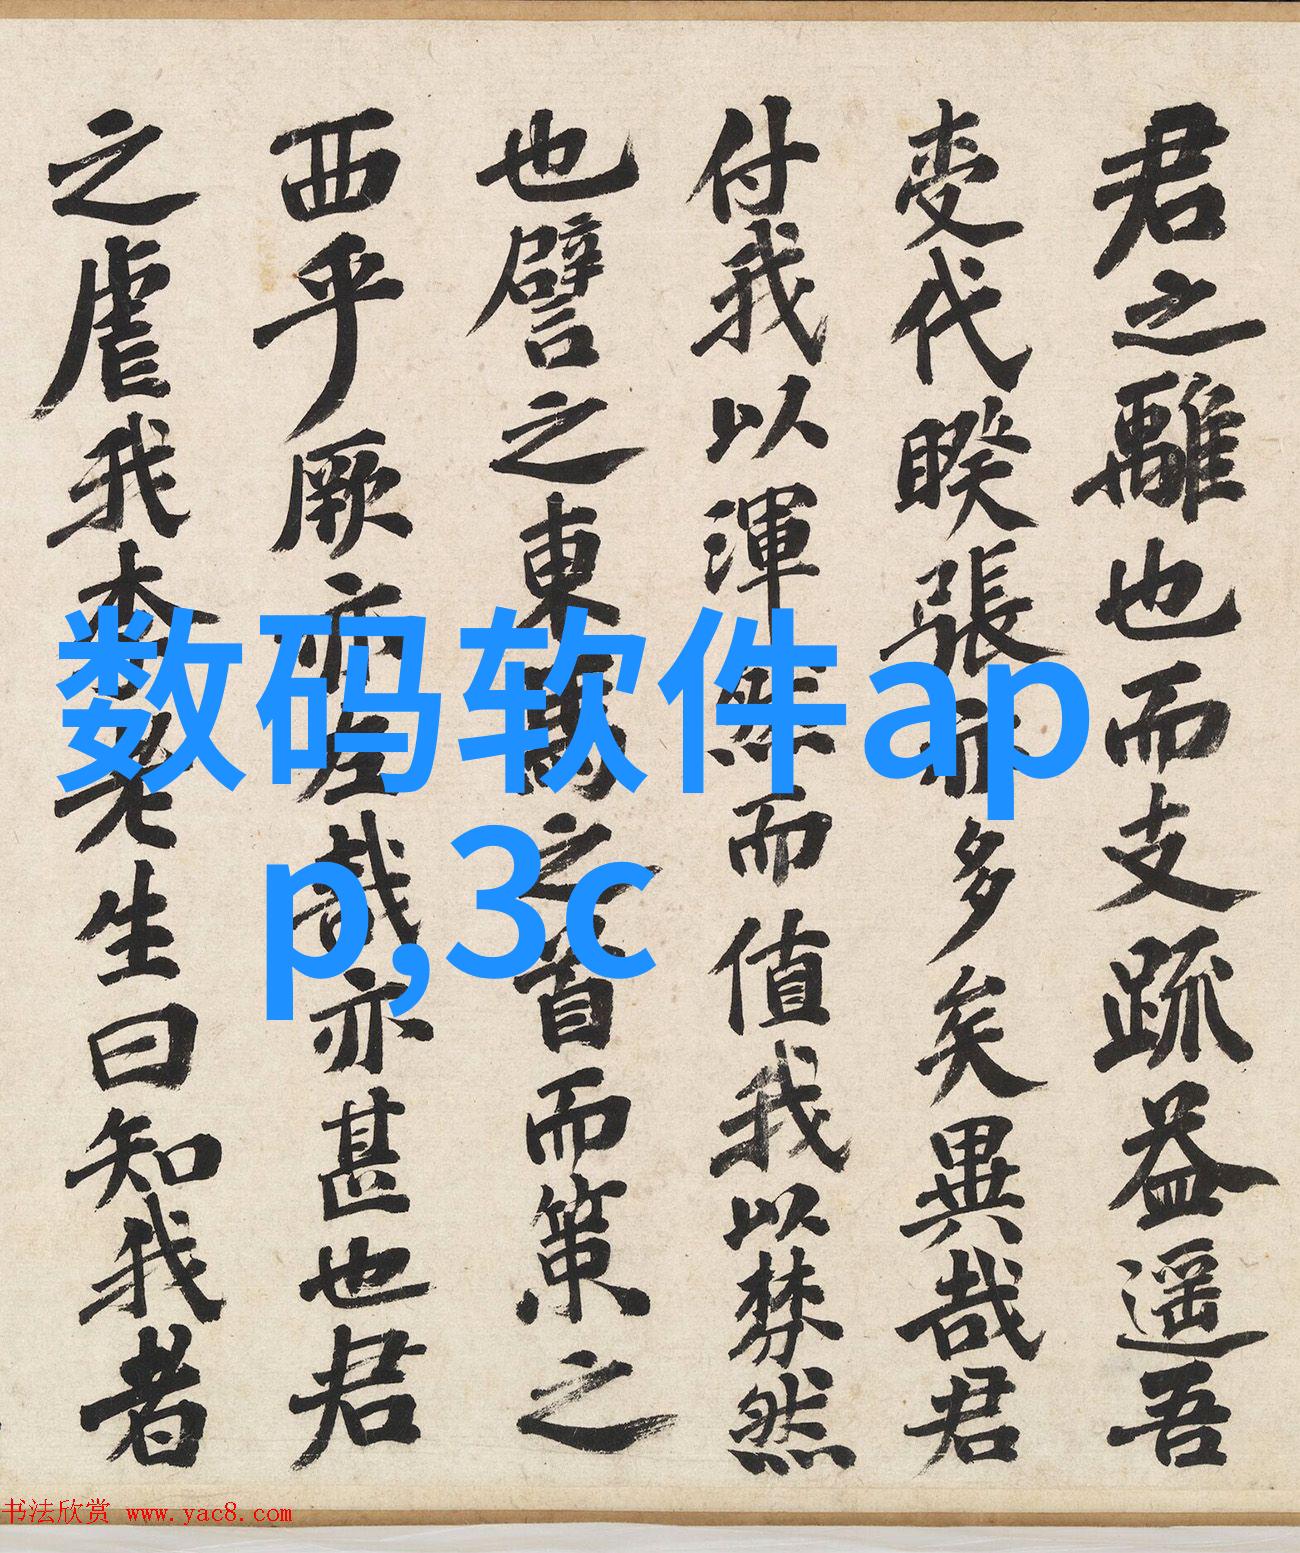 君之離也而支疏益遥吾
变代睽張亦多矣異哉君
付我以渾然而值我以棼然
也譬之東馬之首而策之
西乎厥亦左哉亦甚也君
之虐我李老生曰知我者
数码软件ap
p,3c
书法欣赏 www.yac8.com